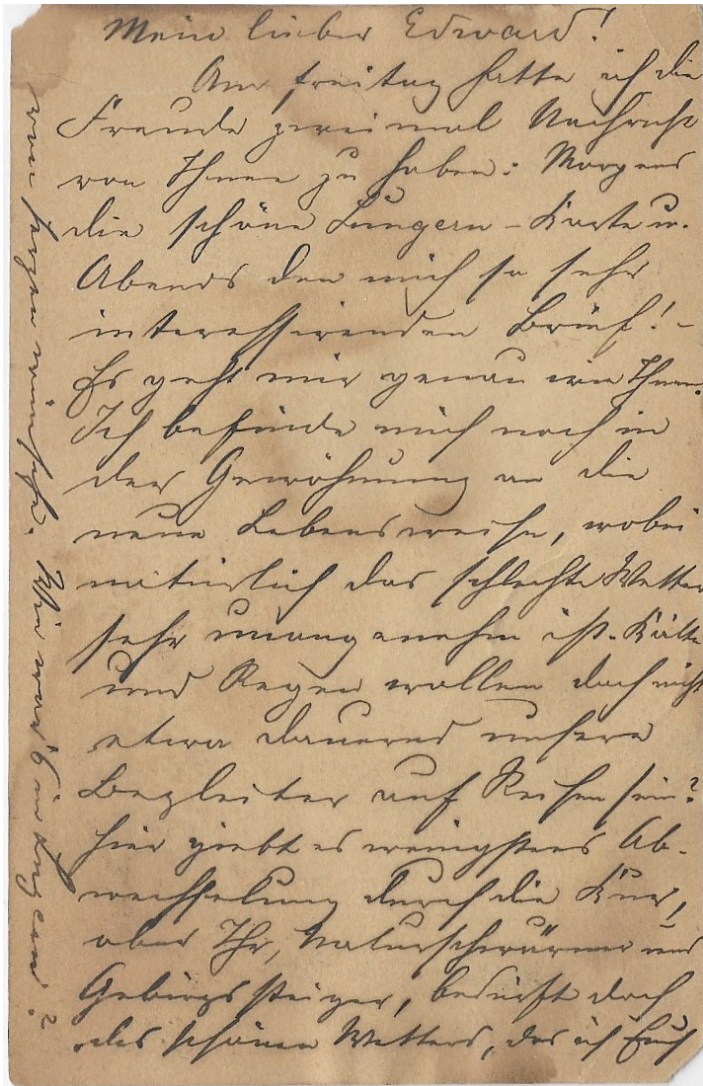 Mein lieber Edward!
Am Freitag hatte ich die
Freude zweimal Nachricht
von Ihnen zu haben: Morgens
die schöne Lungern-Karte u.
Abends den mich so sehr
interessirenden Brief! -
Es geht mir genau wie Ihnen.
Ich befinde mich noch in
der Gewöhnung an die
neue Lebensweise, wobei
natürlich das schlechte Wetter
sehr unangenehm ist. Kälte
und Regen wollen doch nicht
etwa dauernd unsere
Begleiter auf Reisen sein?
Hier giebt es wenigstens Ab-
wechselung durch die Kur,
aber Ihr, Naturschwärmer und
Gebirgssteiger, bedürft doch
des schönen Wetters, das ich Euch
von Herzen wünsche. Wie war's in Lungern?